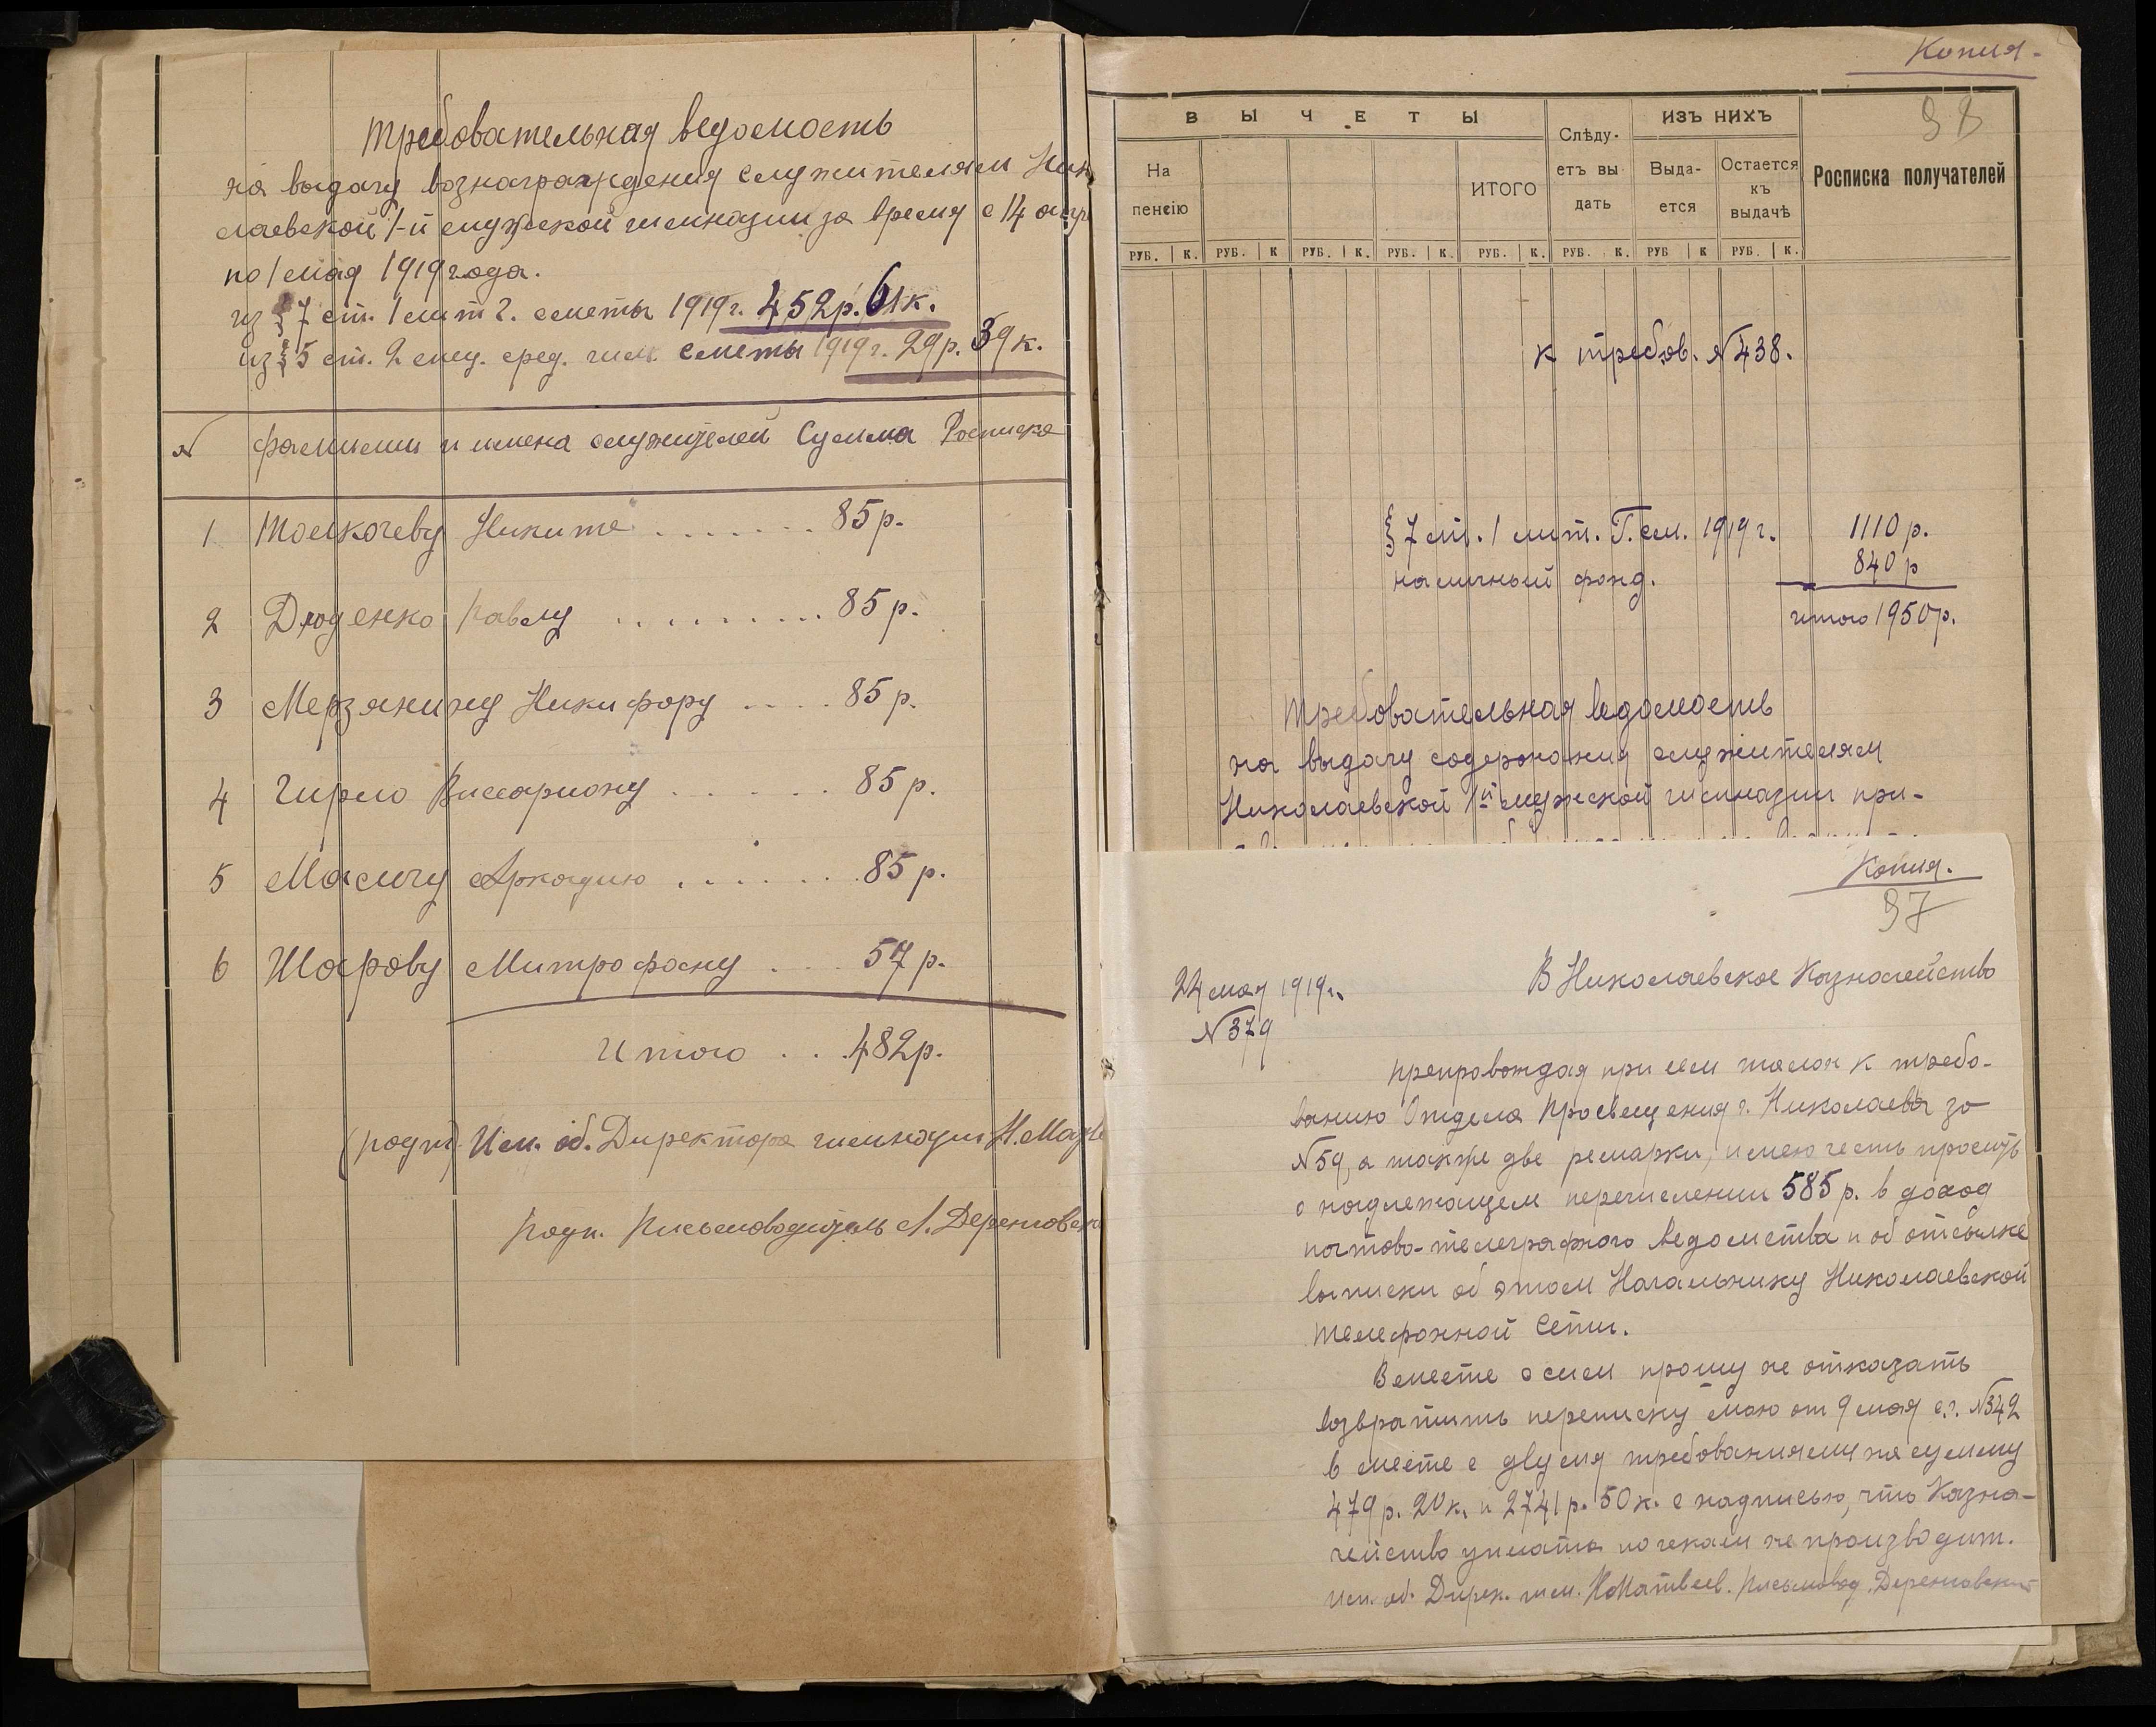 Требовательная ведомость
на выдачу вознаграждения служителям Нико
лаевской 1-й мужской гимназии за время с 14 апр
по 1 мая 1919 года.
из § 7 ст. 1 лит Г. сметы 1919 г. 452 р. 61 к.
из § 5 ст. 2 спец. сред. гим. сметы 1919 г. 29 р. 39 к.
№ Фамилии и имена служителей Сумма Росписка
1 Толкачеву Никите ....... 85 р.
2 Дюденко Павлу .......... 85 р.
3 Мерзянину Никифору .... 85 р.
4 Гирло Виссариону ...... 85 р.
5 Масличу Аркадию ....... 85 р.
6 Шарову Митрофану .... 57 р.
Итого ... 482 р.
(подп) Исп. об. Директора гимназии Н. Матве
Подп. Письмоводитель А. Деренговск
Копия.
98
ВЫЧЕТЫ
На пенсію
ИТОГО
Слѣду-
етъ вы
дать
ИЗЪ НИХЪ
Выда-
ется
Остается
къ
выдачѣ
Росписка получателей
РУБ. К. РУБ. К РУБ. К. РУБ. К. РУБ. К. РУБ. К. РУБ К РУБ. К.
к требов. № 438.
§ 7 ст. 1 лит. Г. см. 1919 г. 1110 р.
наличный фонд. 840 р
итого 1950 р.
Требовательная ведомость
на выдачу содержания служителям
Николаевской 1й мужской гимназии при-
Копия.
97
22 мая 1919 г.
№ 379
В Николаевское Казначейство
Препровождая при сем талон к требо-
ванию Отдела Просвещения г. Николаева за
№ 59, а также две ремарки, имею честь просить
о надлежащем перечислении 585 р. в доход
почтово-телеграфного ведомства и об отсылке
выписки об этом Начальнику Николаевской
телефонной сети.
Вместе с сим прошу не отказать
возвратить переписку мою от 9 мая с.г. № 342
в месте с двумя требованиями на сумму
479 р. 20 к. и 2741 р. 50 к. с надписью, что Казна-
чейство уплаты по чекам не производит.
Исп. об. Дирек. гим. Н Матвеев. Письмовод. Деренговский